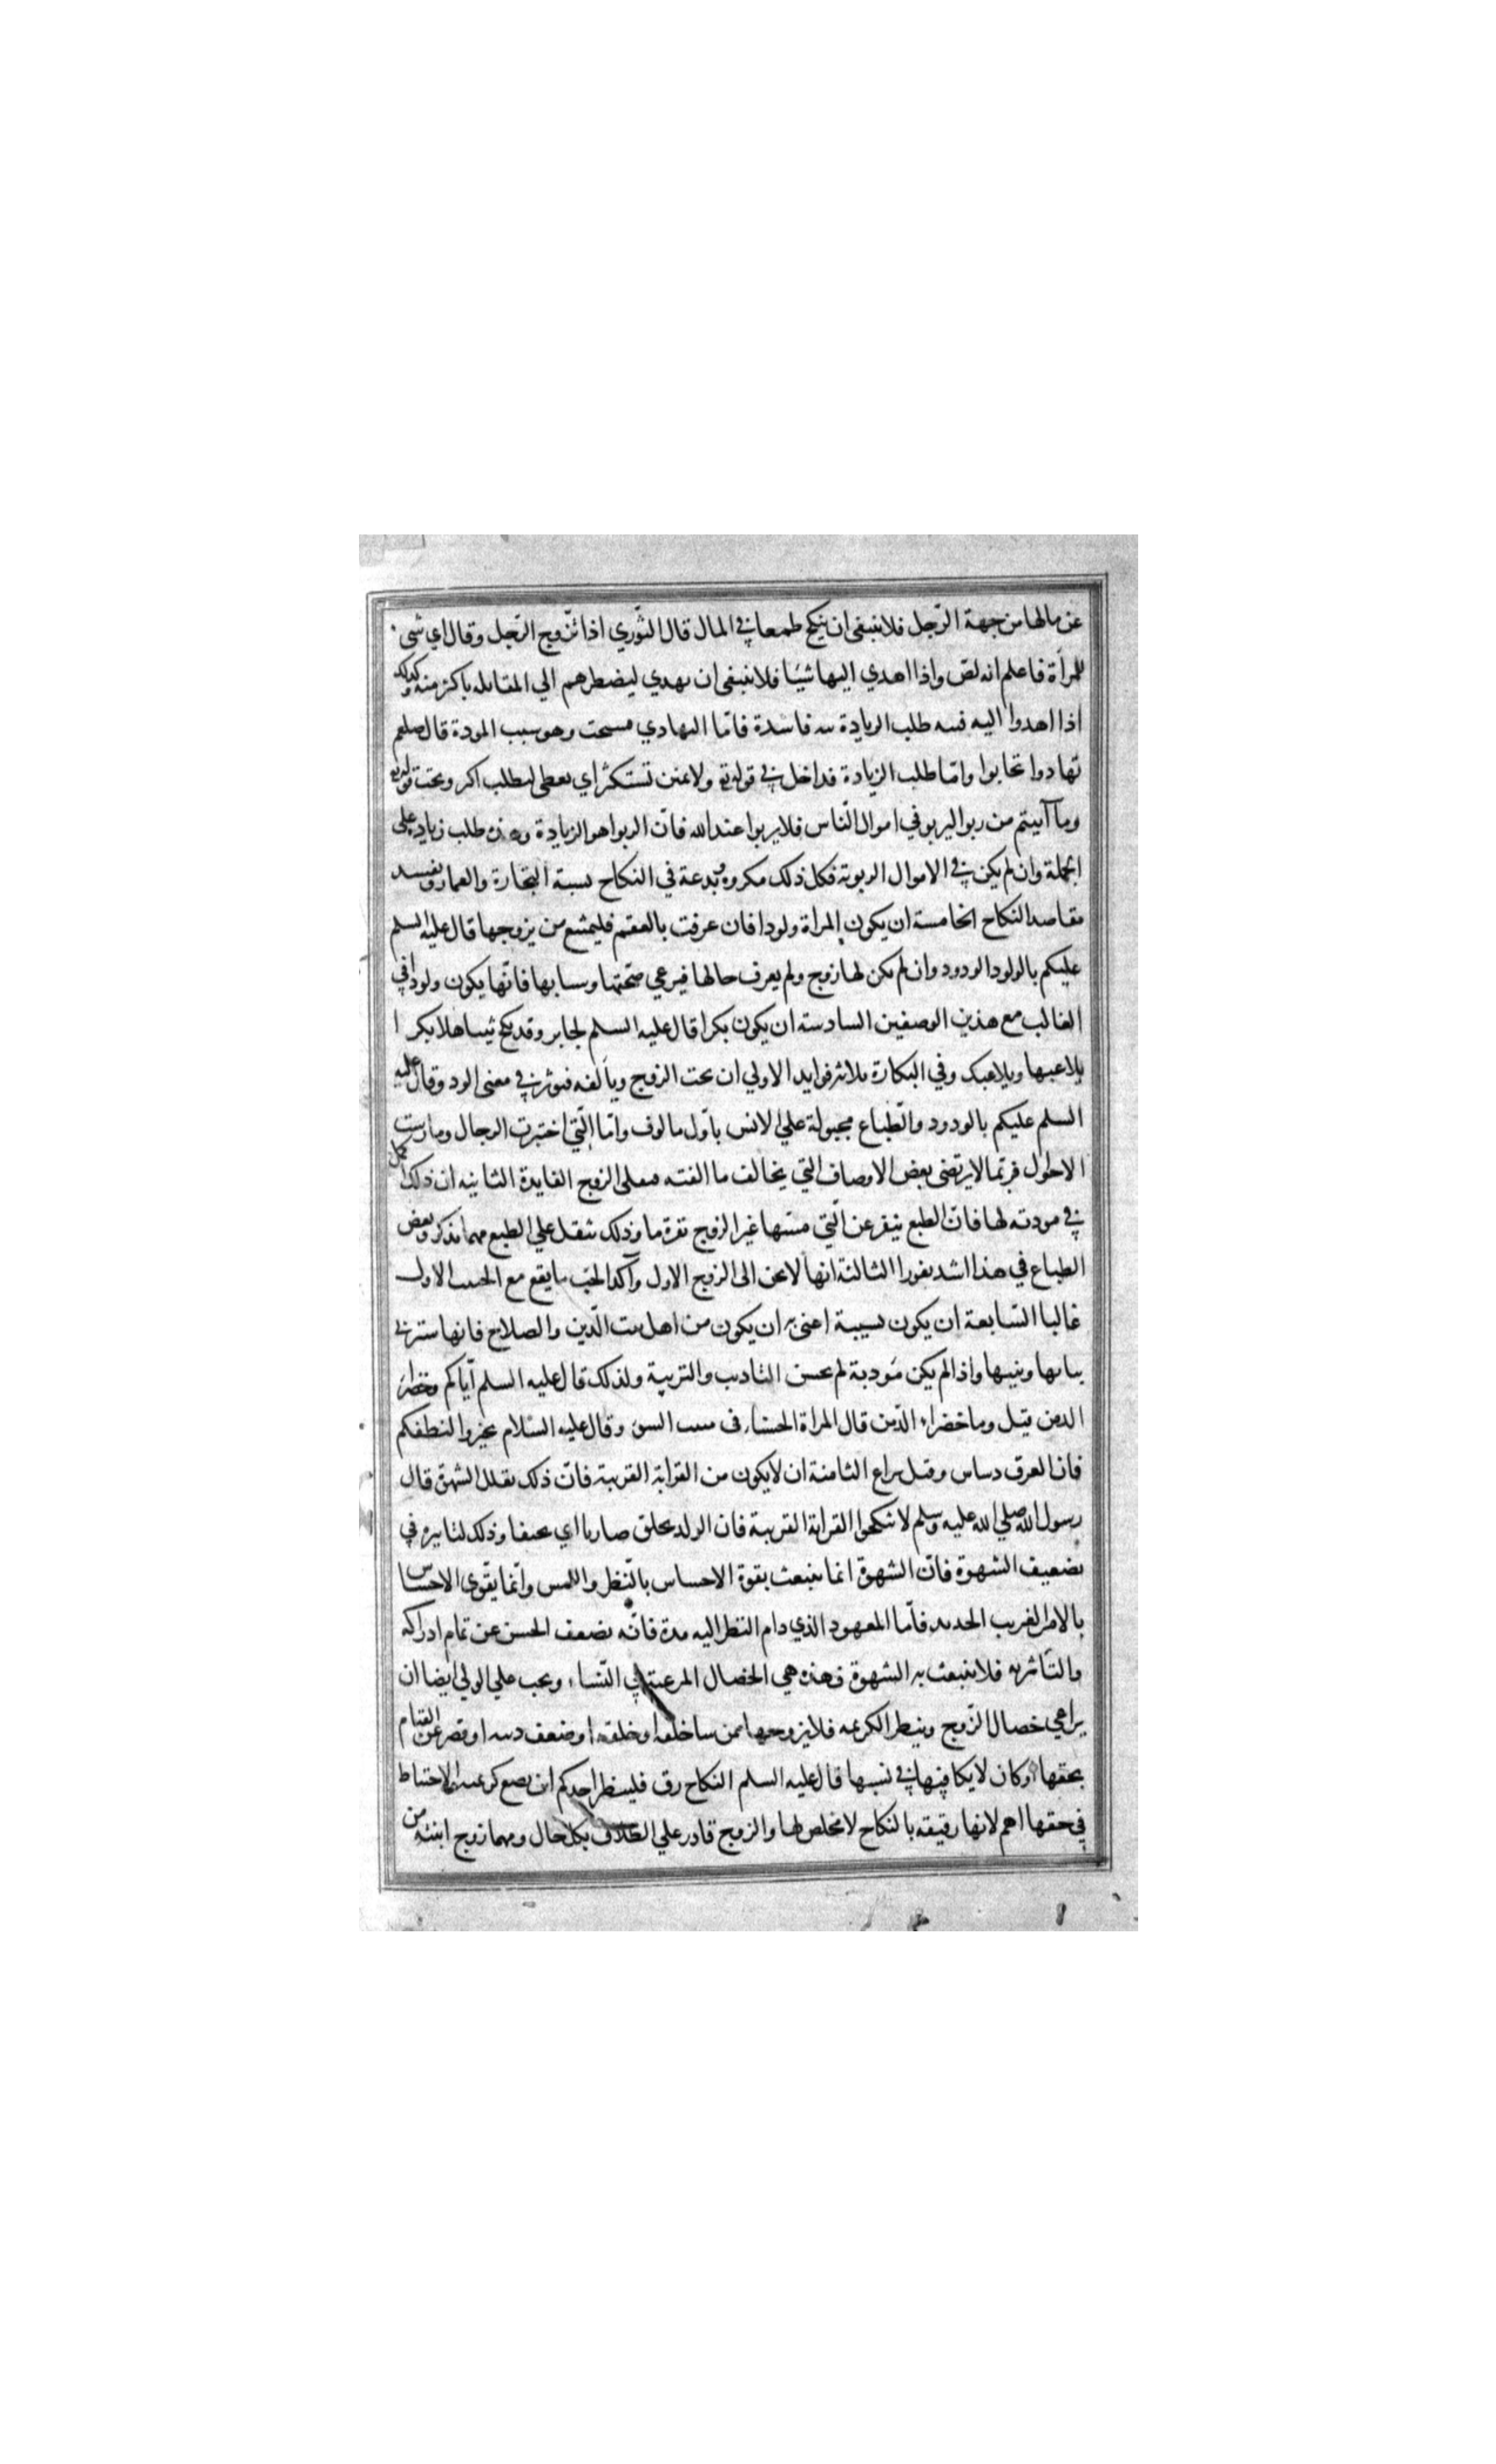 عن مالها من جهة الرّجل فلا ينبغى ان ينكح طمعا في المال قال الثّوري اذا تزّوج الرّجل وقال اي شى
للمرأة فاعلم انه لصّ واذا اهدي اليها شيَا فلا ينبغى ان يهدي ليضطرهم الي المقابله باكثر منه وكذلك
اذا اهدوا اليه فنيه طلب الزيادة نيه فاسدة فامّا التهادي مستحب وهو سبب المودة قال صلعم
تهادوا تحابوا وامّا طلب الزيادة فداخل في قوله تع ولا تمنن تستكثر اي تعطى لتطلب اكثر وتحت قوله تع
وما آتيتم من ربوا ليربو في اموال النّاس فلا يربوا عند الله فانّ الربوا هو الزيادة وهذه طلب زيادة على
الجملة وان لم يكن في الاموال الربوية فكل ذلك مكروه وبدعة في النكاح يشبه التجارة والقمار ويفسد
مقاصد النكاح الخامسة ان يكون المراة ولودا فان عرفت بالعقم فليمتنع من يزوجها قال عليه السلم
عليكم بالولود الودود وان لم يكن لها زوج ولم يعرف حالها فيرعي صحّتها وشبابها فانّها يكون ولودا في
الغالب مع هذين الوصفين السادسة ان يكون بكرا قال عليه السلم لجابر وقد نكح ثيبا هلا بكرا
يلاعبها ويلاعبك وفي البكارة ثلاث فوايد الاولي ان تحب الزوج ويألفه فيوثر في معنى الود وقال عليه
السلم عليكم بالودود والطّباع مجبولة علي الانس باوّل مالوف وامّا الّتي اختبرت الرجال ومارست
الاحوال فربّما لا يرتضى بعض الاوصاف التي يخالف ما الفته فيقلى الزوج الفايدة الثانيه ان ذلك اكمل
في مودته لها فانّ الطبع ينفر عن الّتي مسّها غير الزوج نفرة ما وذلك يثقل علي الطبع مهما يذكر وبعض
الطباع في هذا اشد نفورا الثالثة انها لا تحن الى الزوج الاول وآكد الحبّ ما يقع مع الحبيب الاول
غالبا السّابعة ان يكون نسيبة اعنى به ان يكون من اهل بيت الدّين والصلاح فانها ستربى
بناتها وبنيها واذا لم يكن مَودبة لم يحسن التاديب والتربية ولذلك قال عليه السلم ايّاكم وخضراء
الدمن قيل وما خضراء الدّمن قال المراة الحسناء فى منبت السوء وقال عليه السّلام تخيروا لنطفكم
فان العرق دساس وقيل نزاع الثامنة ان لا يكون من القرابة القريبة فانّ ذلك يقلل الشهوة قال
رسول الله صلي الله عليه وسلم لا تنكحوا القرابة القريبة فان الولد يخلق ضاويا اي نحيفا وذلك لتاثيره في
تضعيف الشهوة فانّ الشهوة انما ينبعث بقوة الاحساس بالنّظر واللمس وانّما يقوّى الاحساس
بالامر الغريب الجديد فامّا المعهود الذي دام النظر اليه مدة فانّه يضعف الحسن عن تمام ادراكه
والتاَثر به فلا ينبعث به الشهوة فهذه هي الخصال المرغبة في النّساء ويجب علي الولي ايضا ان
يراعي خصال الزّوج وينظر لكريمه فلا يزوجها ممن ساخلقه او خلقه او ضعف دينه او قصر عن القيام
بحقها او كان لا يكافيها في نسبها قال عليه السلم النكاح رق فلينظر احدكم اين يضع كريمته والاحتياط
في حقها اهم لانها رقيقه بالنكاح لا مخلص لها والزوج قادر علي الطلاق بكل حال ومهما زوج ابنته من